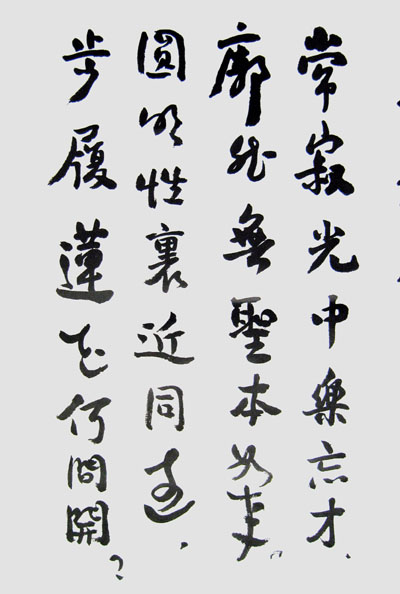 常寂光中樂忘才、
廓然無聖本如來。
圓明性裏近同遠，
步履蓮花何問開？